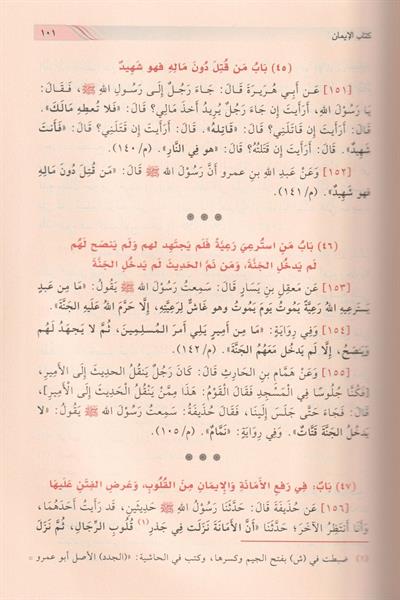 كتاب الإيمان
١٠١
(٤٥) بَابُ مَن قُتِلَ دُونَ مَالِهِ فهو شَهِيدٌ
[١٥١] عَن أَبِي هُرَيْرَةَ قَالَ: جَاءَ رَجُلٌ إِلَى رَسُولِ اللهِ ﷺ، فَقَالَ:
يَا رَسُولَ اللهِ، أَرَأَيتَ إِن جَاءَ رَجُلٌ يُرِيدُ أَخذَ مَالِي؟ قَالَ: «فَلَا تُعطِهِ مَالَكَ».
قَالَ: أَرَأَيتَ إِن قَاتَلَنِي؟ قَالَ: «قَاتِلهُ». قَالَ: أَرَأَيتَ إِن قَتَلَنِي؟ قَالَ: «فَأَنتَ
شَهِيدٌ». قَالَ: أَرَأَيتَ إِن قَتَلتُهُ؟ قَالَ: «هو فِي النَّارِ». (م/ ١٤٠).
[١٥٢] وَعَنْ عَبدِ اللهِ بنِ عمرو أَنَّ رَسُولَ اللهِ ﷺ قَالَ: «مَن قُتِلَ دُونَ مَالِهِ
فهو شَهِيدٌ». (م/ ١٤١).
(٤٦) بَابُ مَنِ استُرعِيَ رَعِيَّةً فَلَم يَجتَهِد لهم وَلَم يَنصَح لَهُم
لَم يَدخُلِ الجَنَّةَ، وَمَن نَمَّ الحَدِيثَ لَم يَدخُلِ الجَنَّةَ
[١٥٣] عَن مَعقِلِ بنِ يَسَارٍ قَالَ: سَمِعتُ رَسُولَ اللهِ ﷺ يَقُولُ: «مَا مِن عَبدٍ
يَستَرعِيهِ اللهُ رَعِيَّةً يَمُوتُ يَومَ يَمُوتُ وهو غَاشٌّ لِرَعِيَّتِهِ، إِلَّا حَرَّمَ اللهُ عَلَيهِ الجَنَّةَ».
[١٥٤] وَفِي رِوَايَةٍ: «مَا مِن أَمِيرٍ يَلِي أَمرَ المُسلِمِينَ، ثُمَّ لَا يَجهَدُ لَهُم
وَيَنصَحُ، إِلَّا لَم يَدخُل مَعَهُمُ الجَنَّةَ». (م/ ١٤٢).
[١٥٥] وَعَن هَمَّامِ بنِ الحَارِثِ قَالَ: كَانَ رَجُلٌ يَنقُلُ الحدِيثَ إِلَى الأَمِيرِ،
[فَكُنَّا جُلُوسًا فِي المَسْجِدِ فَقَالَ القَوْمُ: هَذَا مِمَّنْ يَنْقُلُ الْحَدِيثَ إِلَى الأَمِيرِ]،
قَالَ: فَجَاءَ حَتَّى جَلَسَ إِلَينَا، فَقَالَ حُذَيفَةُ: سَمِعتُ رَسُولَ الله ﷺ يَقُولُ: «لَا
يَدخُلُ الجَنَّةَ قَتَّاتٌ». وَفِي رِوَايَةٍ: «نَمَّامٌ». (م/ ١٠٥).
(٤٧) بَابٌ: فِي رَفعِ الأَمَانَةِ وَالإِيمَانِ مِنَ القُلُوبِ، وَعَرضِ الفِتَنِ عَلَيهَا
[١٥٦] عَن حُذَيفَةَ قَالَ: حَدَّثَنَا رَسُولُ اللهِ ﷺ حَدِيثَينِ، قَد رَأَيتُ أَحَدَهُمَا،
وَأَنَا أَنتَظِرُ الآخَرَ؛ حَدَّثَنَا «أَنَّ الأَمَانَةَ نَزَلَت فِي جَذرِ(١) قُلُوبِ الرِّجَالِ، ثُمَّ نَزَلَ
ضبطت في (ش) بفتح الجيم وكسرها، وكتب في الحاشية: «(الجدد) الأصل أبو عمرو